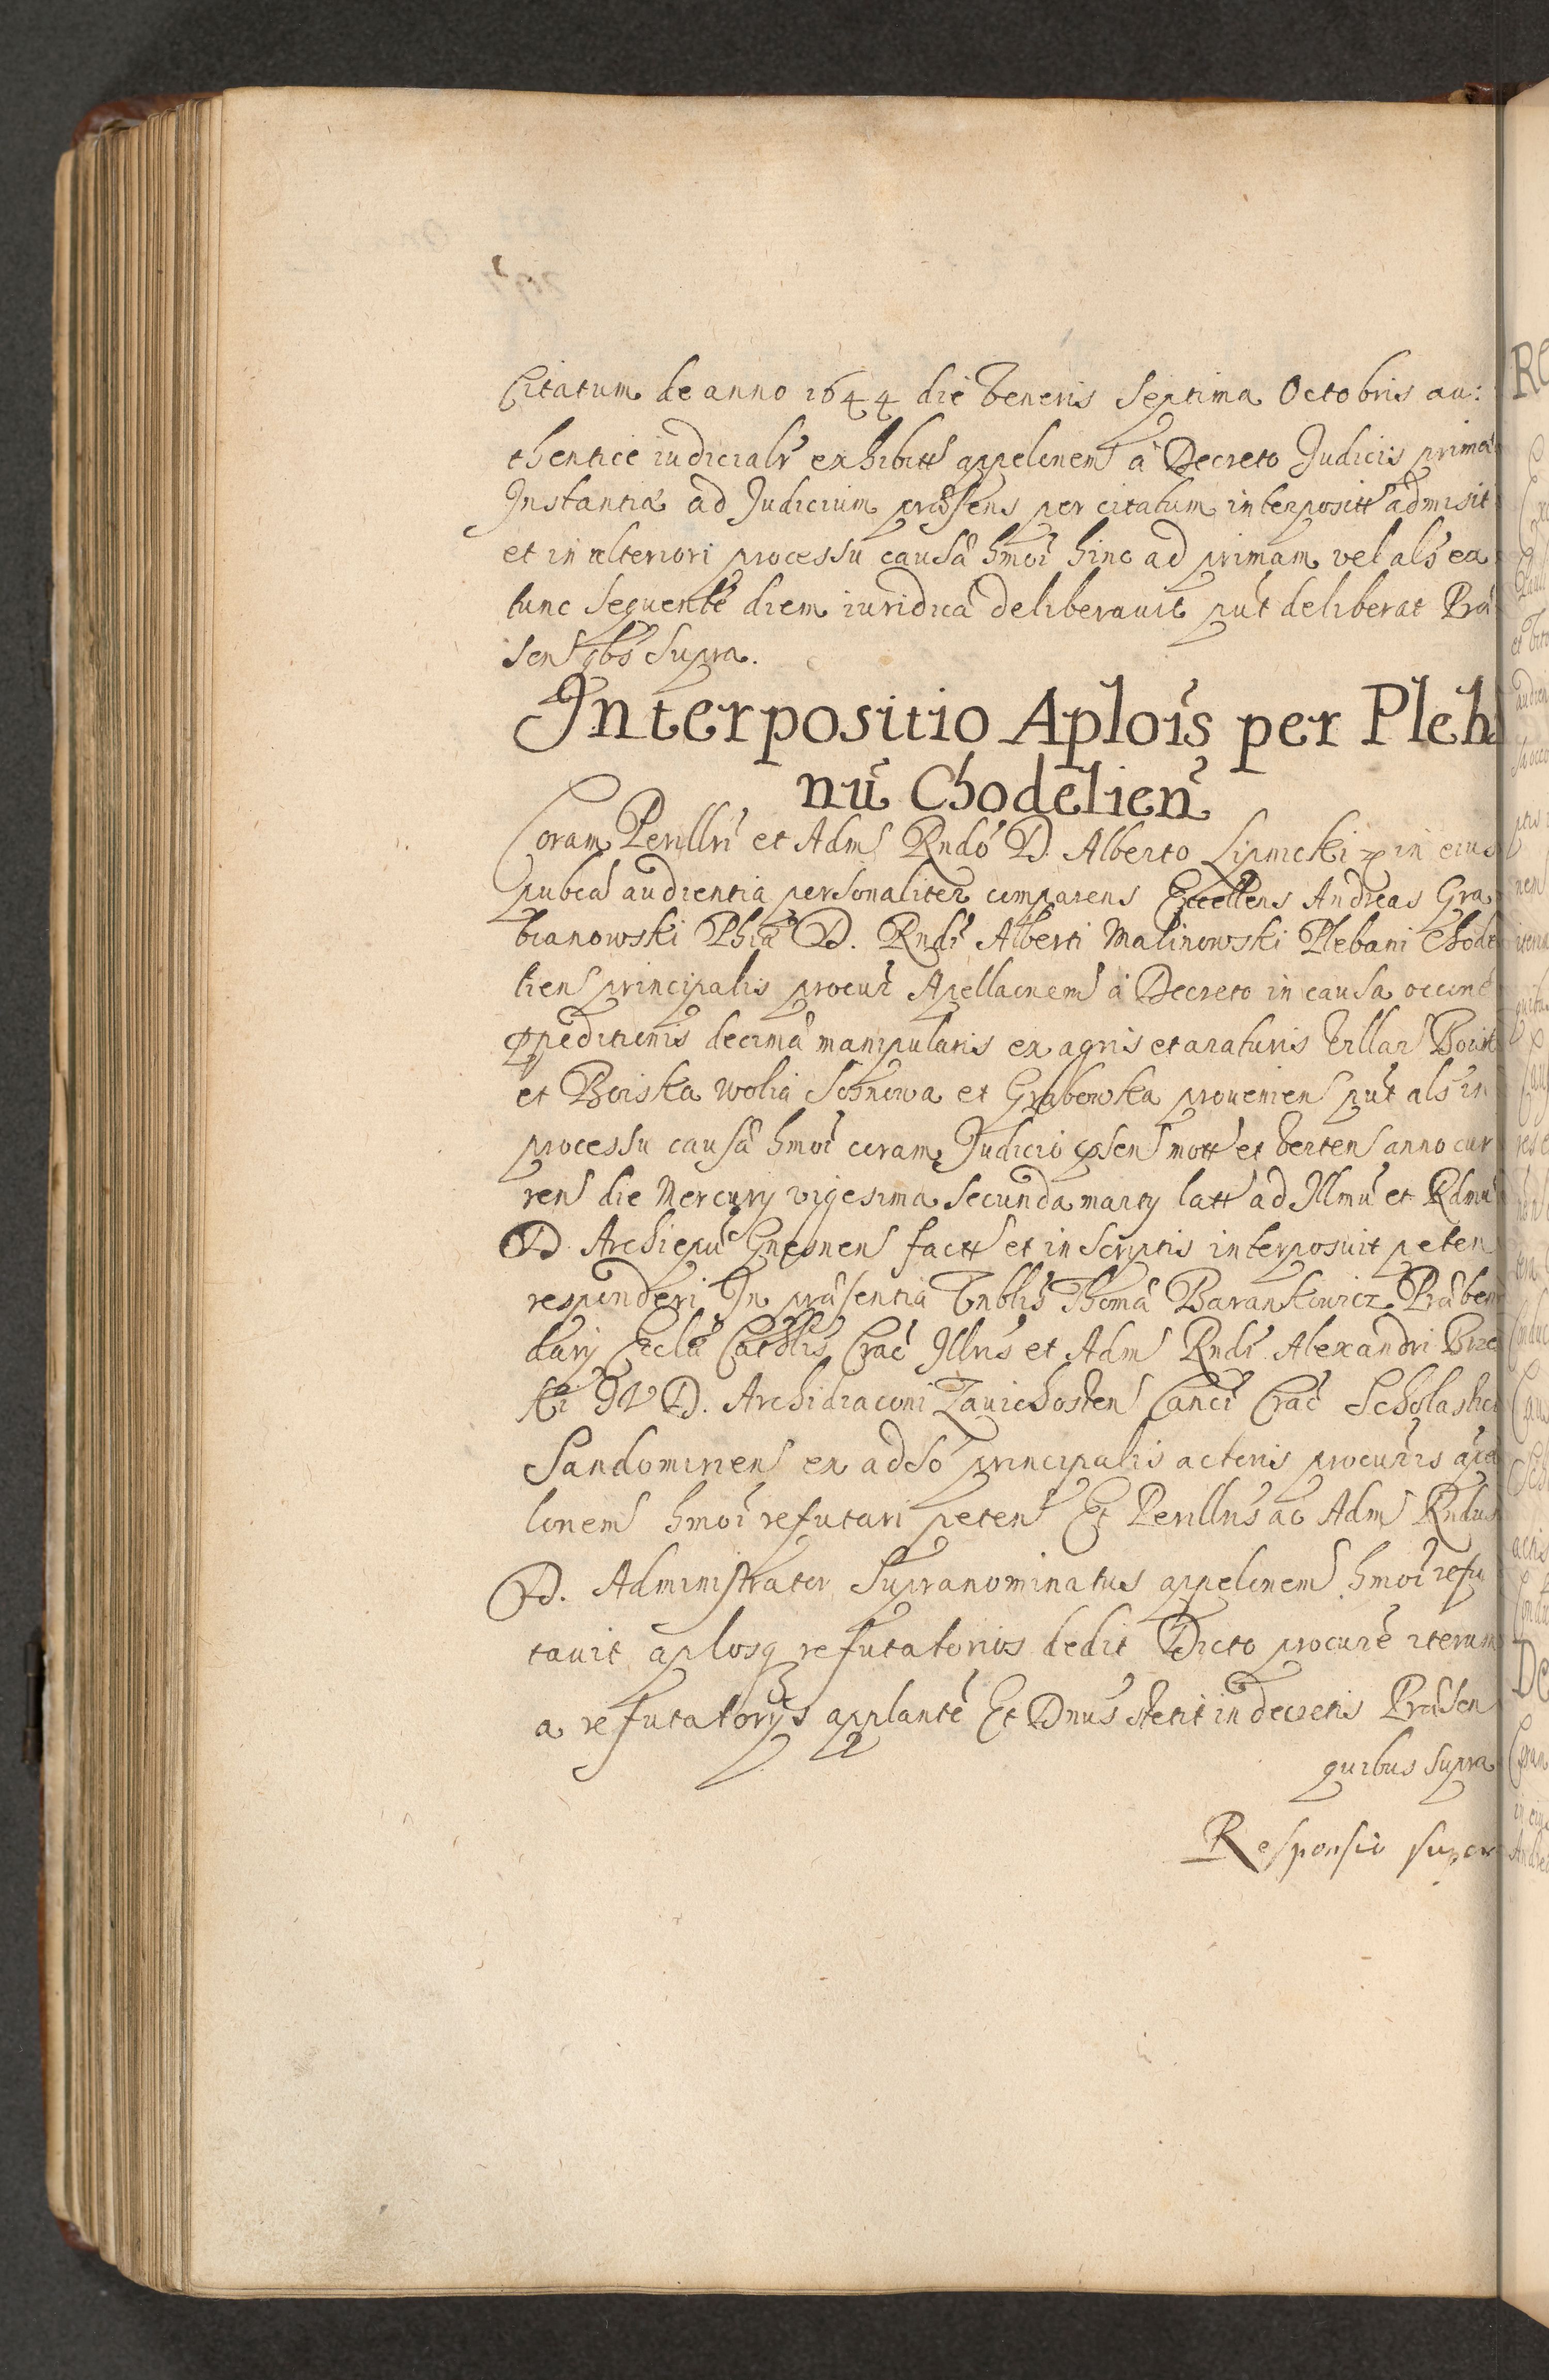 Citatum de anno 1644 die Veneris Septima Octobris au:
thentice iudicialr exhibitt appelonem à Decreto Judicis primæ
Instantiæ ad Judicium præsens per citatum interpositt admisit
et in ulteriori processu causæ hmoi hinc ad primam vel als ex
tunc sequente diem iuridica deliberauit put deliberat Præ
sen qbs supra.
Interpositio Aplois per Pleb
nu Chodelien
Coram Perillri et Adm Rndo D. Alberto Lipnicki in eius
pubca audientia personaliter comparens Excellens Andreas Gra
bianowski Phiæ D. Rndi Alberti Malinowski Plebani Chode
lien principalis procur Apellacnem à Decreto in causa occne
expeditionis decimæ manipularis ex agris et araturis Villar Boisk
et Boiska Wolia Sosnowa et Grabowka prouenien put als in
processu causæ hmoi coram Judicio psen mott et verten anno cur
ren die Mercurij vigesima secunda martij latt ad Illmu et Rdmu
D. Archiepu Gnesnen factt et in scriptis interposuit peten
responderi In præsentia Vnblis Thomæ Barankowicz Præben
darij Ecclæ Cathlis Crac Illris et Adm Rndi Alexandri Brze
ski JVD. Archidiaconi Zauichosten Canci Crac Scholastici
Sandomirien ex adso principalis actoris procuris ape
lonem hmoi refutari peten Et Perillris ac Adm Rndus
D. Administrator supranominatus appelonem hmoi refu
tauit aplosq refutatorios dedit Dicto procure iterum
a refutatorijs applante Et Dnus stetit in decretis Præsen
quibus supra
Responsio super